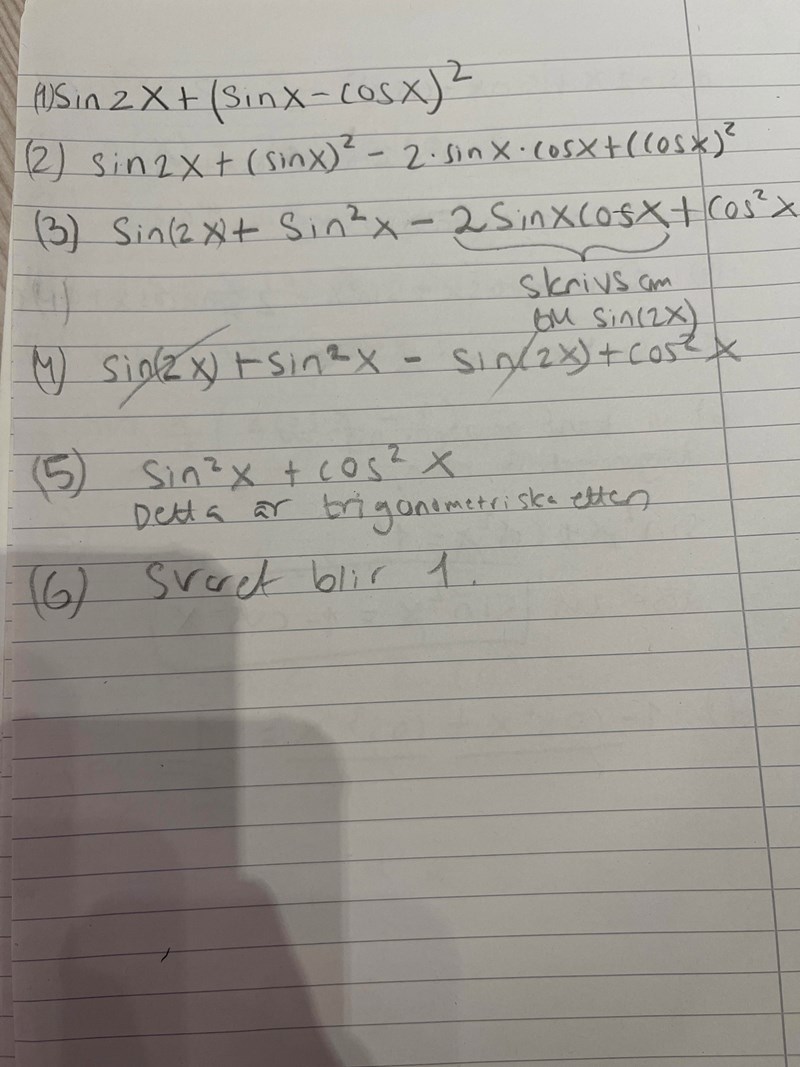 (1) Sin 2x + (sinx - cosx)²
(2) sin2x + (sinx)² - 2·sinx·cosx + (cosx)²
(3) Sin(2x) + Sin²x - 2Sinxcosx + cos²x
skrivs om
till sin(2x)
(4) sin(2x) + sin²x - sin(2x) + cos²x
(5) sin²x + cos²x
Detta är trigonometriska ettan
(6) Svaret blir 1.